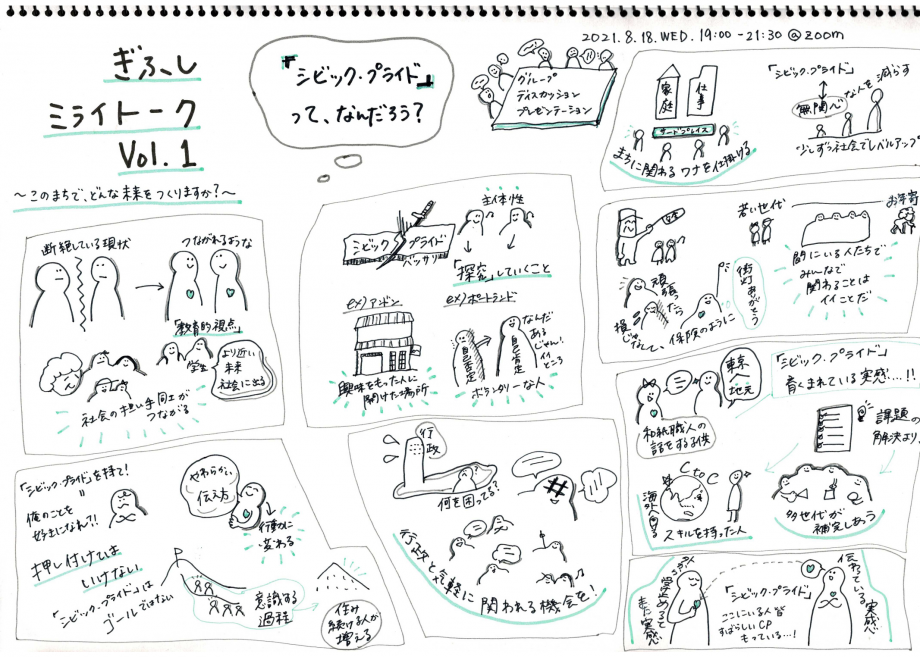 ぎふし
ミライトーク
Vol.1
〜このまちで、どんな未来をつくりますか?〜
『シビック・プライド』
って、なんだろう?
グループ
ディスカッション
プレゼンテーション
2021.8.18.WED. 19:00 -21:30 @zoom
家庭
仕事
サードプレイス
まちに関わるワナを仕掛ける
「シビック・プライド」
無関心な人を減らす
少しずつ社会でレベルアップ
断絶している現状
つながれるような
「教育的視点」
学生
より近い
未来
社会に出る
社会の担い手同士が
つながる
シビック プライド
バッサリ
主体性
「探究」していくこと
ex) アンドン
興味をもった人に
開けた場所
ex) ポートランド
自己否定
自己肯定
なんだ
あるじゃん!
イイところ
ボランタリーな人
若い世代
お年寄
間にいる人たちで
みんなで
関わることは
イイことだ
頑張ったら
損じゃなくて、保険のように
街灯ありがとう
「シビック・プライド」
育くまれている実感…!!
東京
地元
和紙職人の
話をする子供
課題の
解決より、
CtoC
海外
スキルを持った人
多世代が
補完しあう
「シビック・プライド」を持て!
=
俺のことを
好きになれ?!
押し付けては
いけない
「シビック・プライド」は
ゴールではない
やわらかい
伝え方
行動に
変わる
意識する
過程
住み
続ける人が
増える
行政
何を困ってる?
行政と気軽に関われる機会を!
「シビック・プライド」
ここにいる人皆
すばらしいCP
もっている…!
伝わっている
実感へ